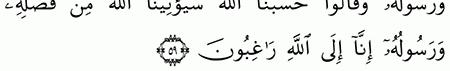 وَرَسُولُهُۥ وَقَالُوا۟ حَسْبُنَا ٱللَّهُ سَيُؤْتِينَا ٱللَّهُ مِن فَضْلِهِۦ
وَرَسُولُهُۥٓ إِنَّآ إِلَى ٱللَّهِ رَٰغِبُونَ ۝٥٩